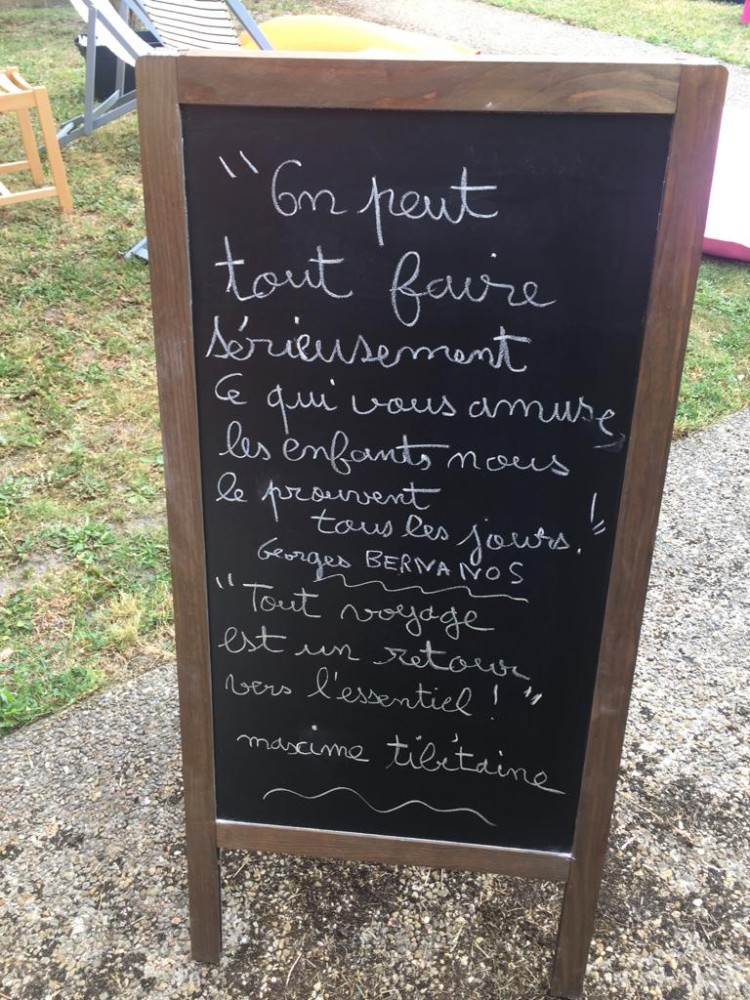 "On peut
tout faire
sérieusement
Ce qui vous amuse,
les enfants nous
le prouvent
tous les jours!"
Georges BERNANOS
"Tout voyage
est un retour
vers l'essentiel! "
maxime tibétaine